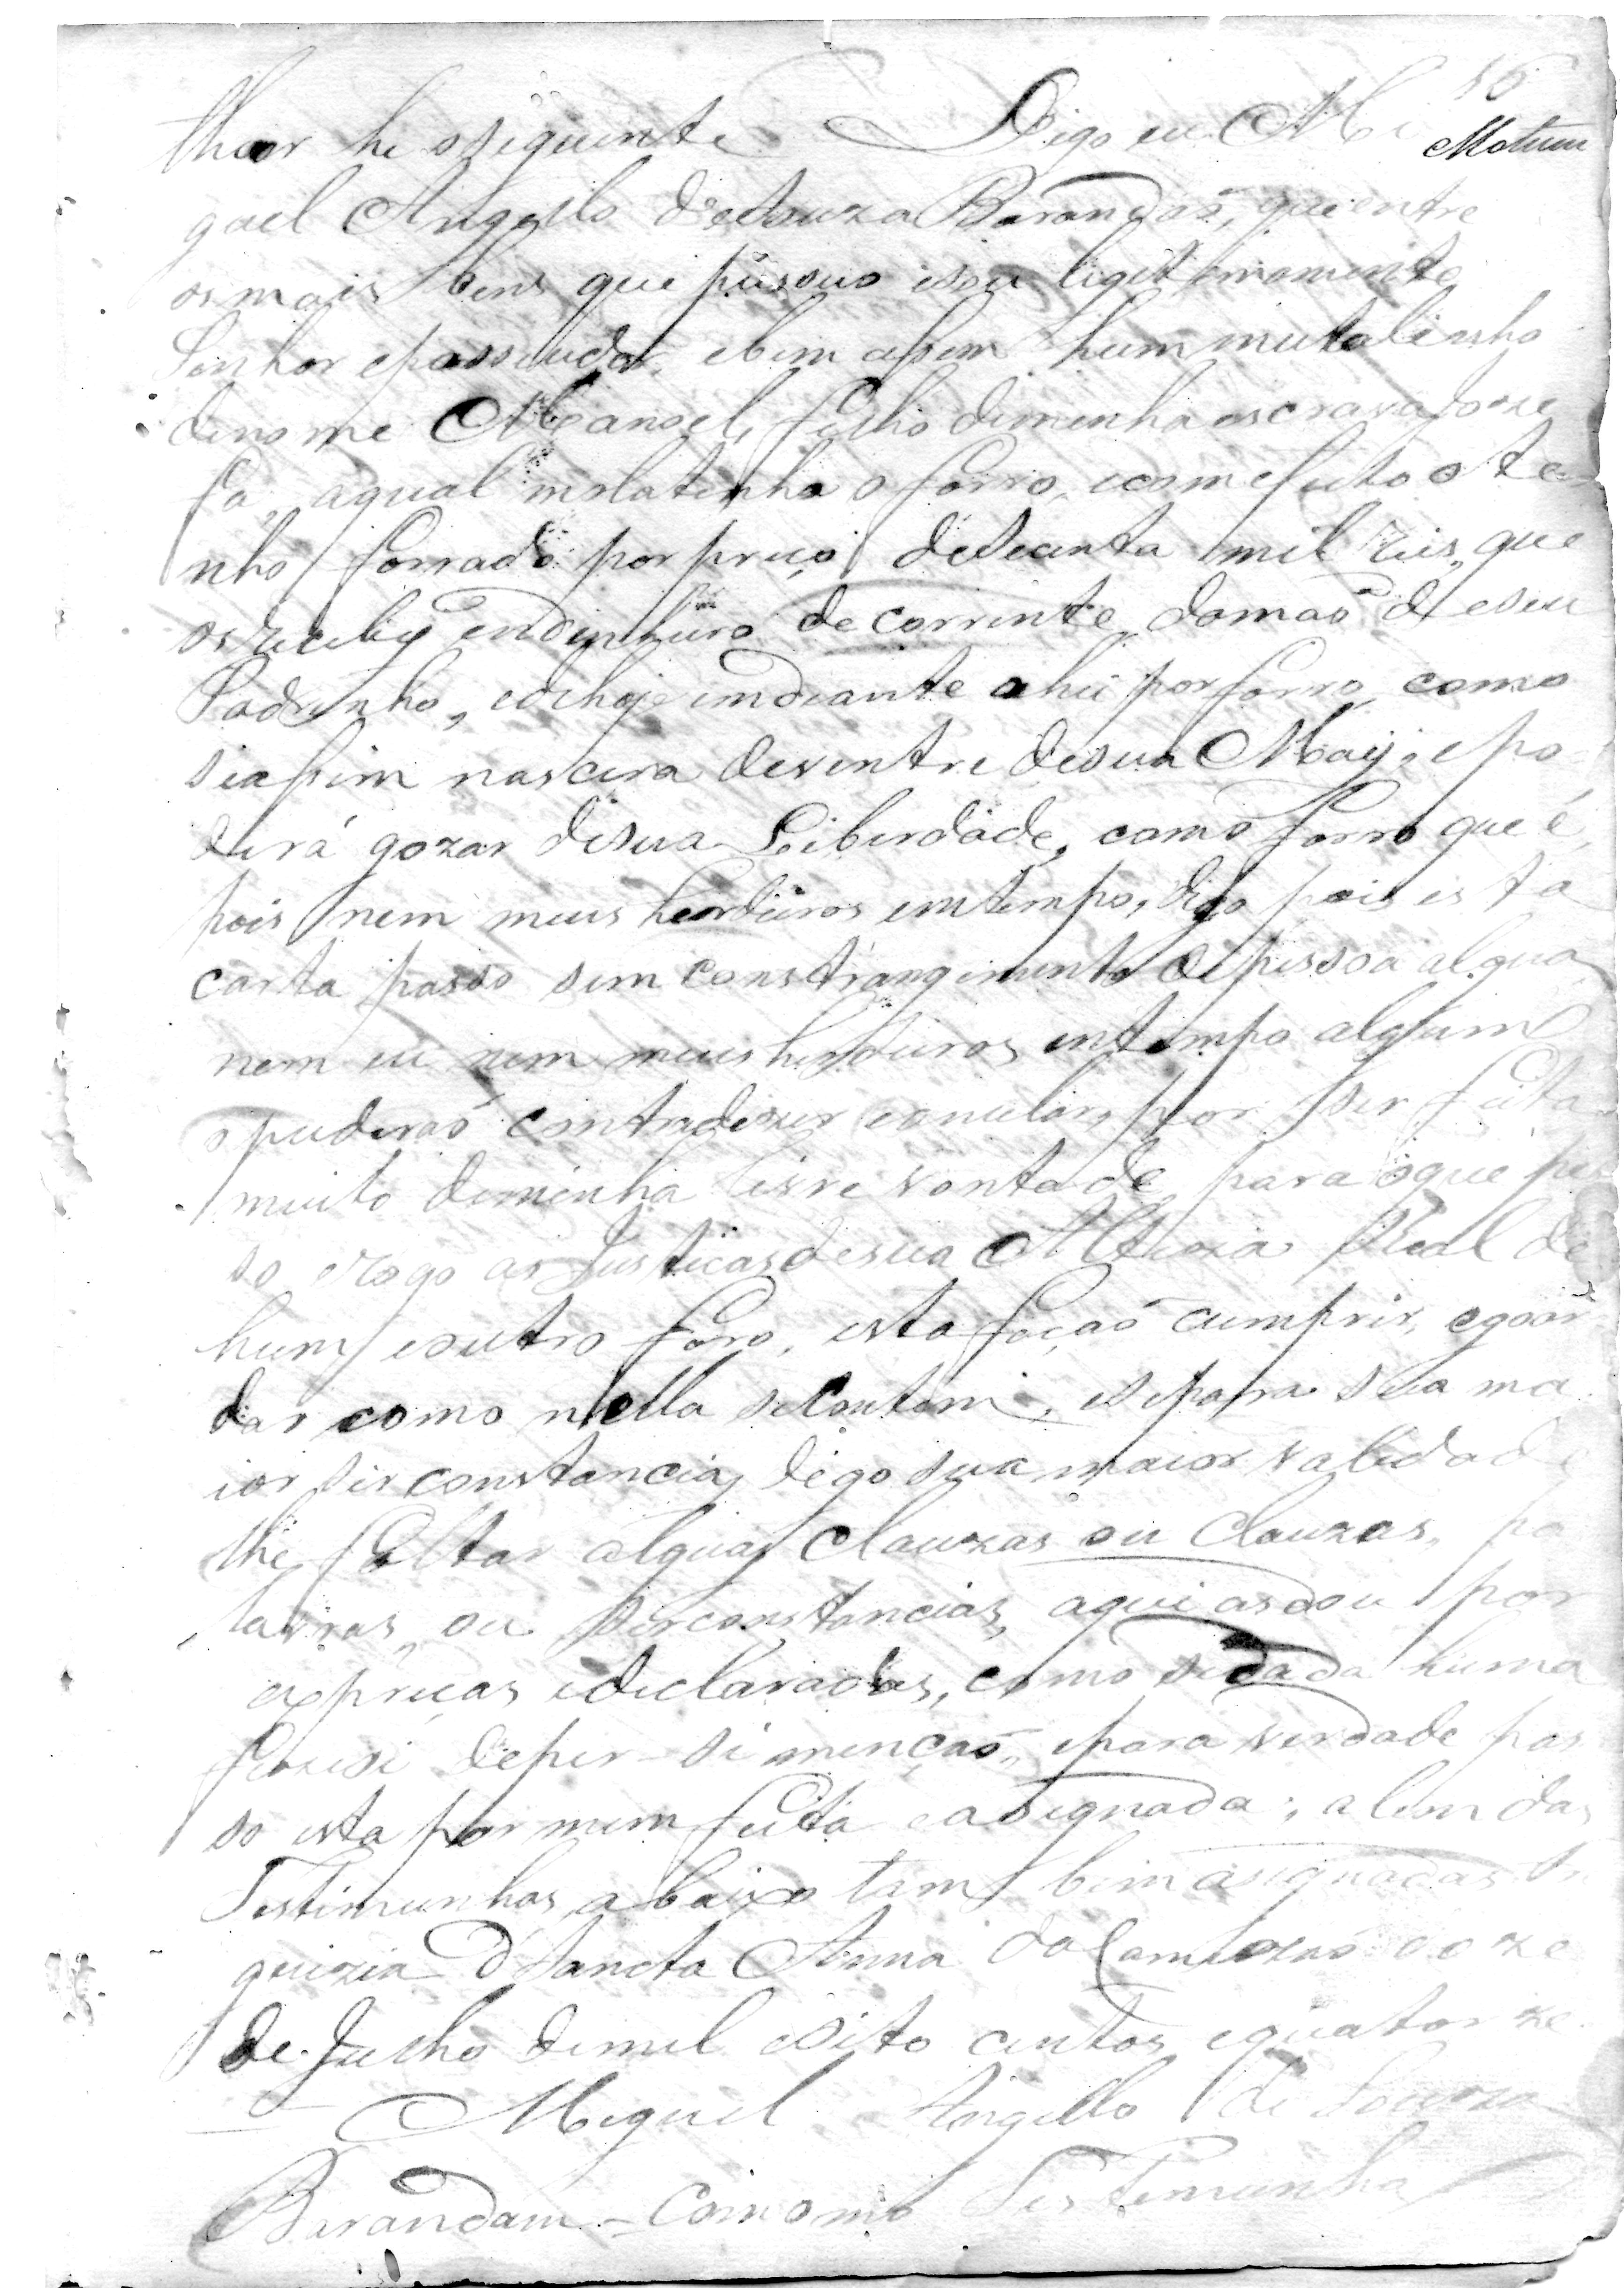 56
Motum
lhor he oseguinte Digo eu Mi
goel Angello deSouza Barandas, que entre
os mais bens que pussuo esou ligitimamente
Senhor epossuidor, ebem assim hum mulatinho
denome Manoel, filho deminha escrava Joze
fa, aqual molatinho oforro, ecomefeito ote
nho forrado por preço desecenta mil reis, que
os recebÿ endinheiro decorrente damaõ deseu
Padrinho, edehoje indiante ahii por forro, como
seassim nascera deventre desua Maÿ, epo
derá gozar desua Liberdade, como forro que é,
pois nem meus herdeiros emtempo, digo pois esta
carta passo sem constrangimento depessoa algua
nem eu nem meus herdeiros emtempo algum
opuderaõ contradezer eanular, por ser feita
muito deminha livre vontade para oque pe
so erogo as Justicas desua Alteza Real de
hum eoutro foro, esta façaõ cumprir, egoar
dar como nella seContem, esepara sua ma
ior sirconstancia, digo sua maior validade
lhe faltar algua Clauzas ou Clauzas, pa
lavras, ou sirconstancias, aqui asdou por
expreças edeclaradas, como sedada huma
fizese deper-si mençaõ, epara verdade pas
so esta por mim feita easignada, alem das
Testimunhas abaixo tambem asignadas
gueizia d'Sancta Anna do Camizaõ doze
de Julho demil eoito centos equatorze
Miguel Angello de Souza
Barandam - Como Testemunha